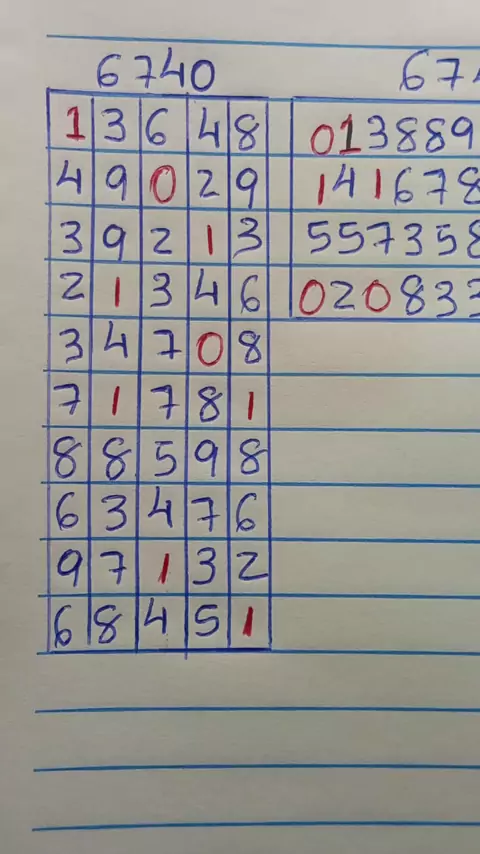 6740
1 3 6 4 8
4 9 0 2 9
3 9 2 1 3
2 1 3 4 6
3 4 7 0 8
7 1 7 8 1
8 8 5 9 8
6 3 4 7 6
9 7 1 3 2
6 8 4 5 1
674
013889
141678
557358
020833